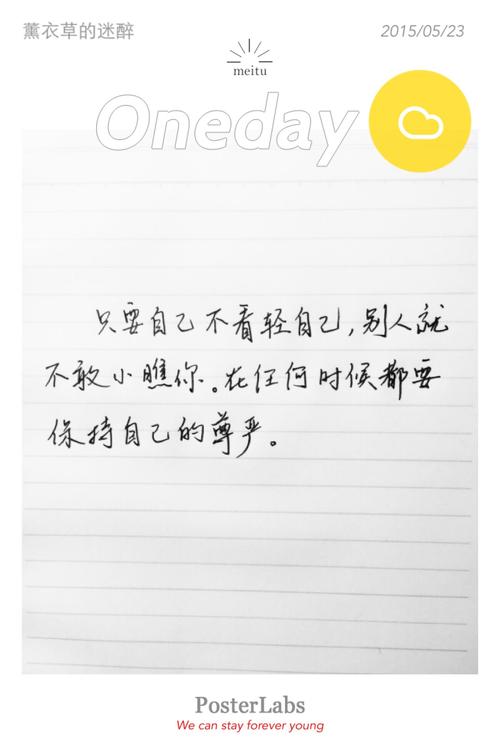 薰衣草的迷醉
2015/05/23
meitu
Oneday
只要自己不看轻自己,别人就
不敢小瞧你。在任何时候都要
保持自己的尊严。
PosterLabs
We can stay forever young